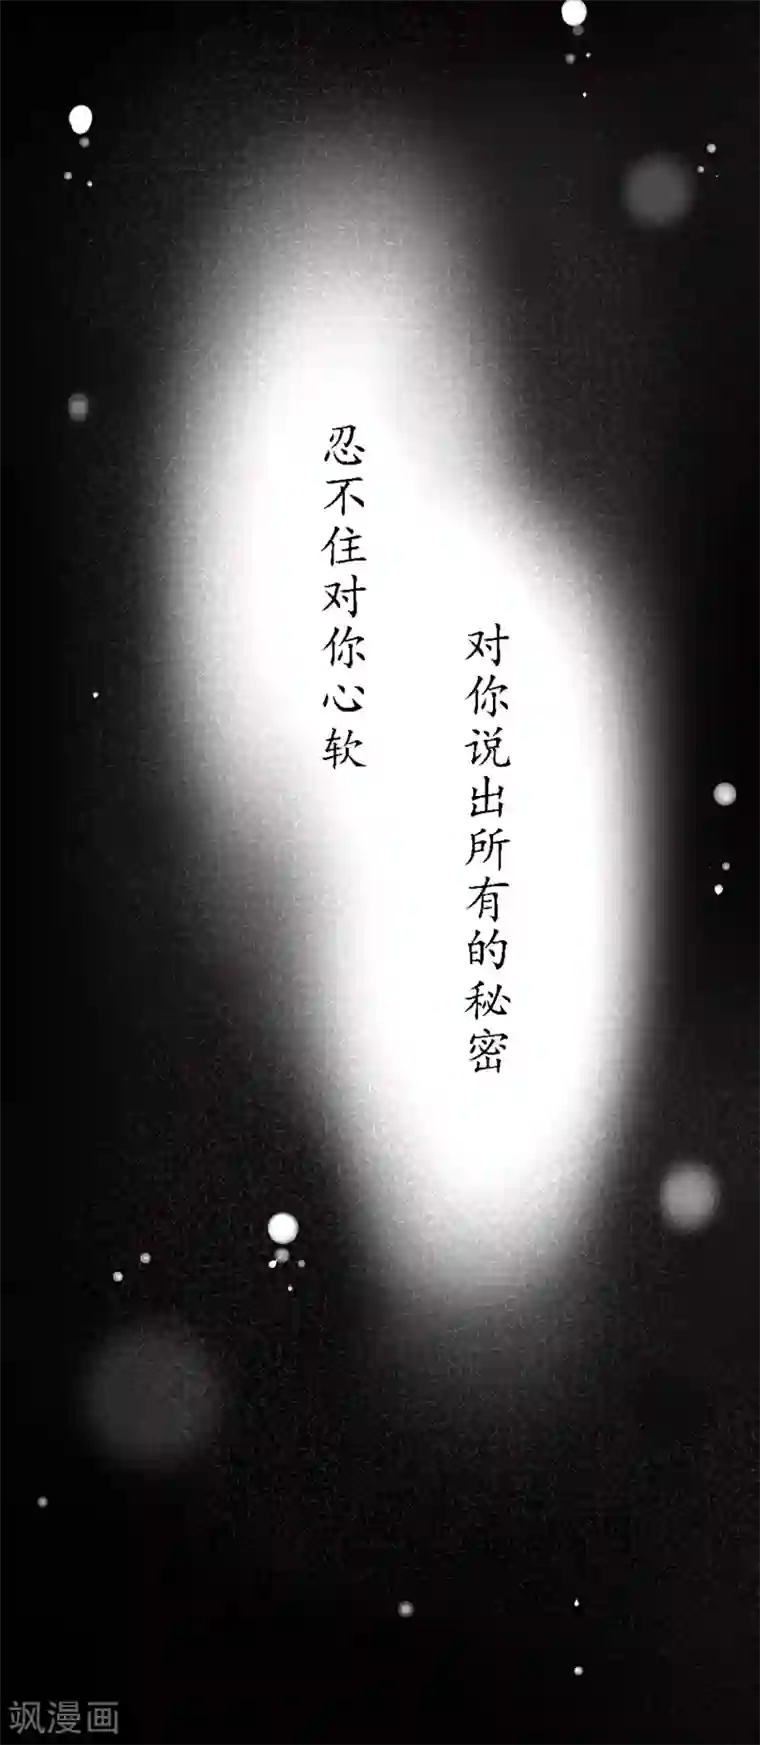 忍不住对你心软
对你说出所有的秘密
飒漫画